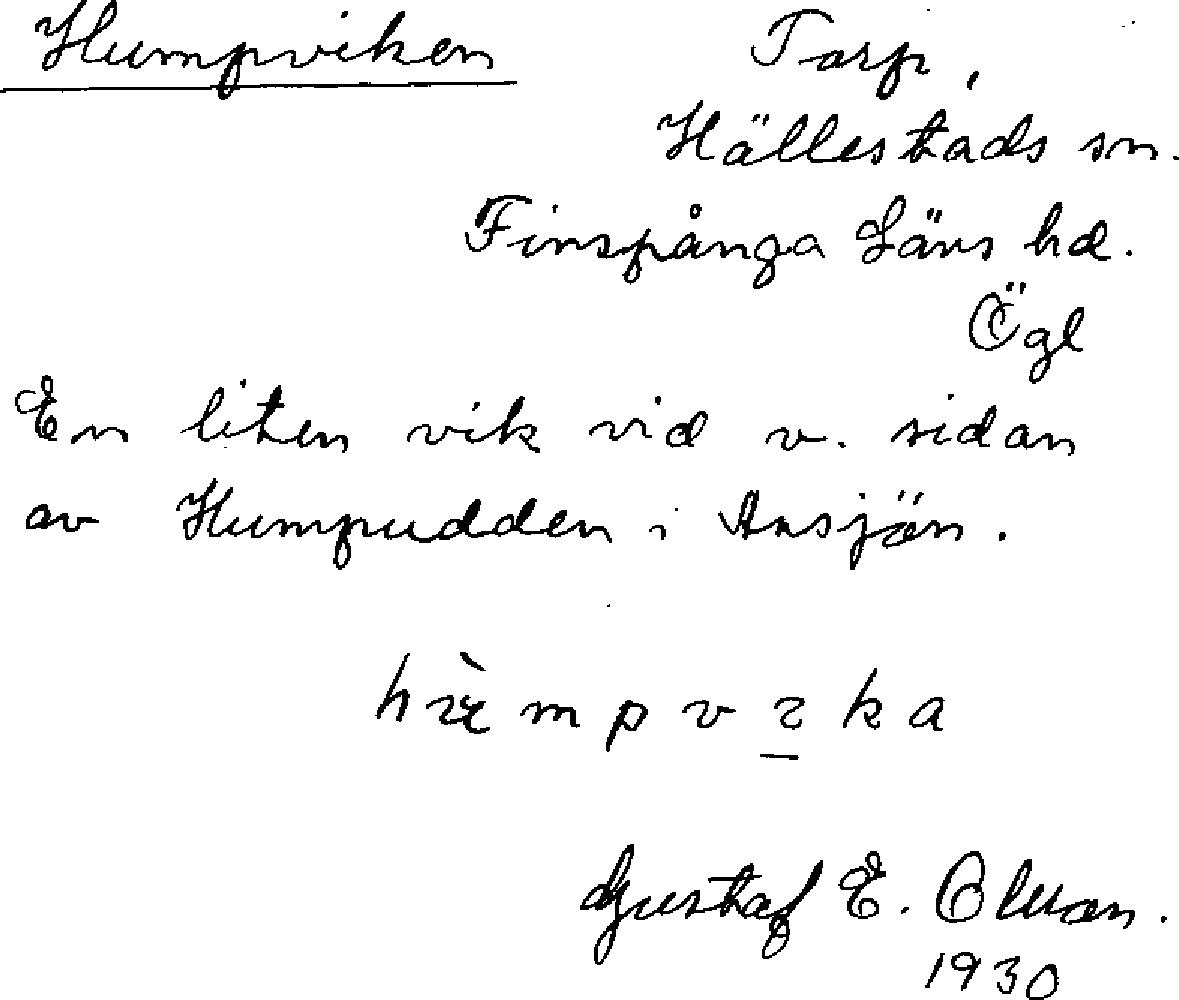 Humpviken Torp,
Hällestads sn.
Finspånga Läns hd.
Ögl
En liten vik vid v. sidan
av Humpudden i Ansjön.
Gustaf E.
1930